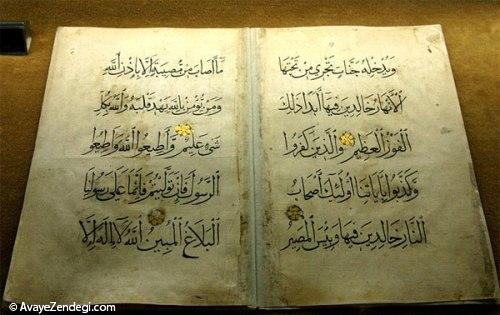 وَيُدْخِلْهُ جَنَّاتٍ تَجْرِي مِنْ تَحْتِهَا
الْأَنْهَارُ خَالِدِينَ فِيهَا أَبَدًا ذَلِكَ
الْفَوْزُ الْعَظِيمُ وَالَّذِينَ كَفَرُوا
وَكَذَّبُوا بِآيَاتِنَا أُولَئِكَ أَصْحَابُ
النَّارِ خَالِدِينَ فِيهَا وَبِئْسَ الْمَصِيرُ
مَا أَصَابَ مِنْ مُصِيبَةٍ إِلَّا بِإِذْنِ اللَّهِ
وَمَنْ يُؤْمِنْ بِاللَّهِ يَهْدِ قَلْبَهُ وَاللَّهُ بِكُلِّ
شَيْءٍ عَلِيمٌ وَأَطِيعُوا اللَّهَ وَأَطِيعُوا
الرَّسُولَ فَإِنْ تَوَلَّيْتُمْ فَإِنَّمَا عَلَى رَسُولِنَا
الْبَلَاغُ الْمُبِينُ اللَّهُ لَا إِلَهَ إِلَّا
© AvayeZendegi.com